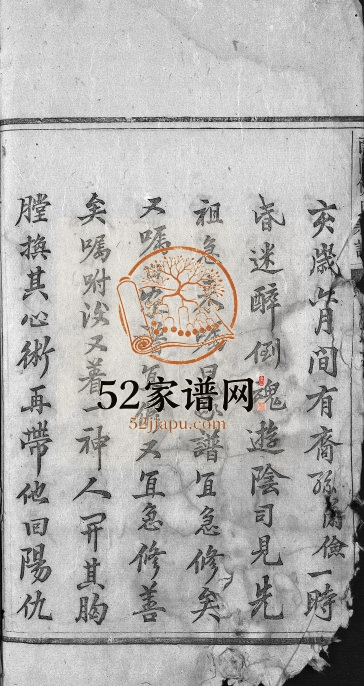 亥歲肖間有裔孫儉一時
昏迷醉倒魂遊陰司見先
祖急譜宜急修矣
又囑又宜急修善
矣囑咐後又着一神人開其胸
膛換其心術再帶他回陽仇
52家谱网
52jiapu.com